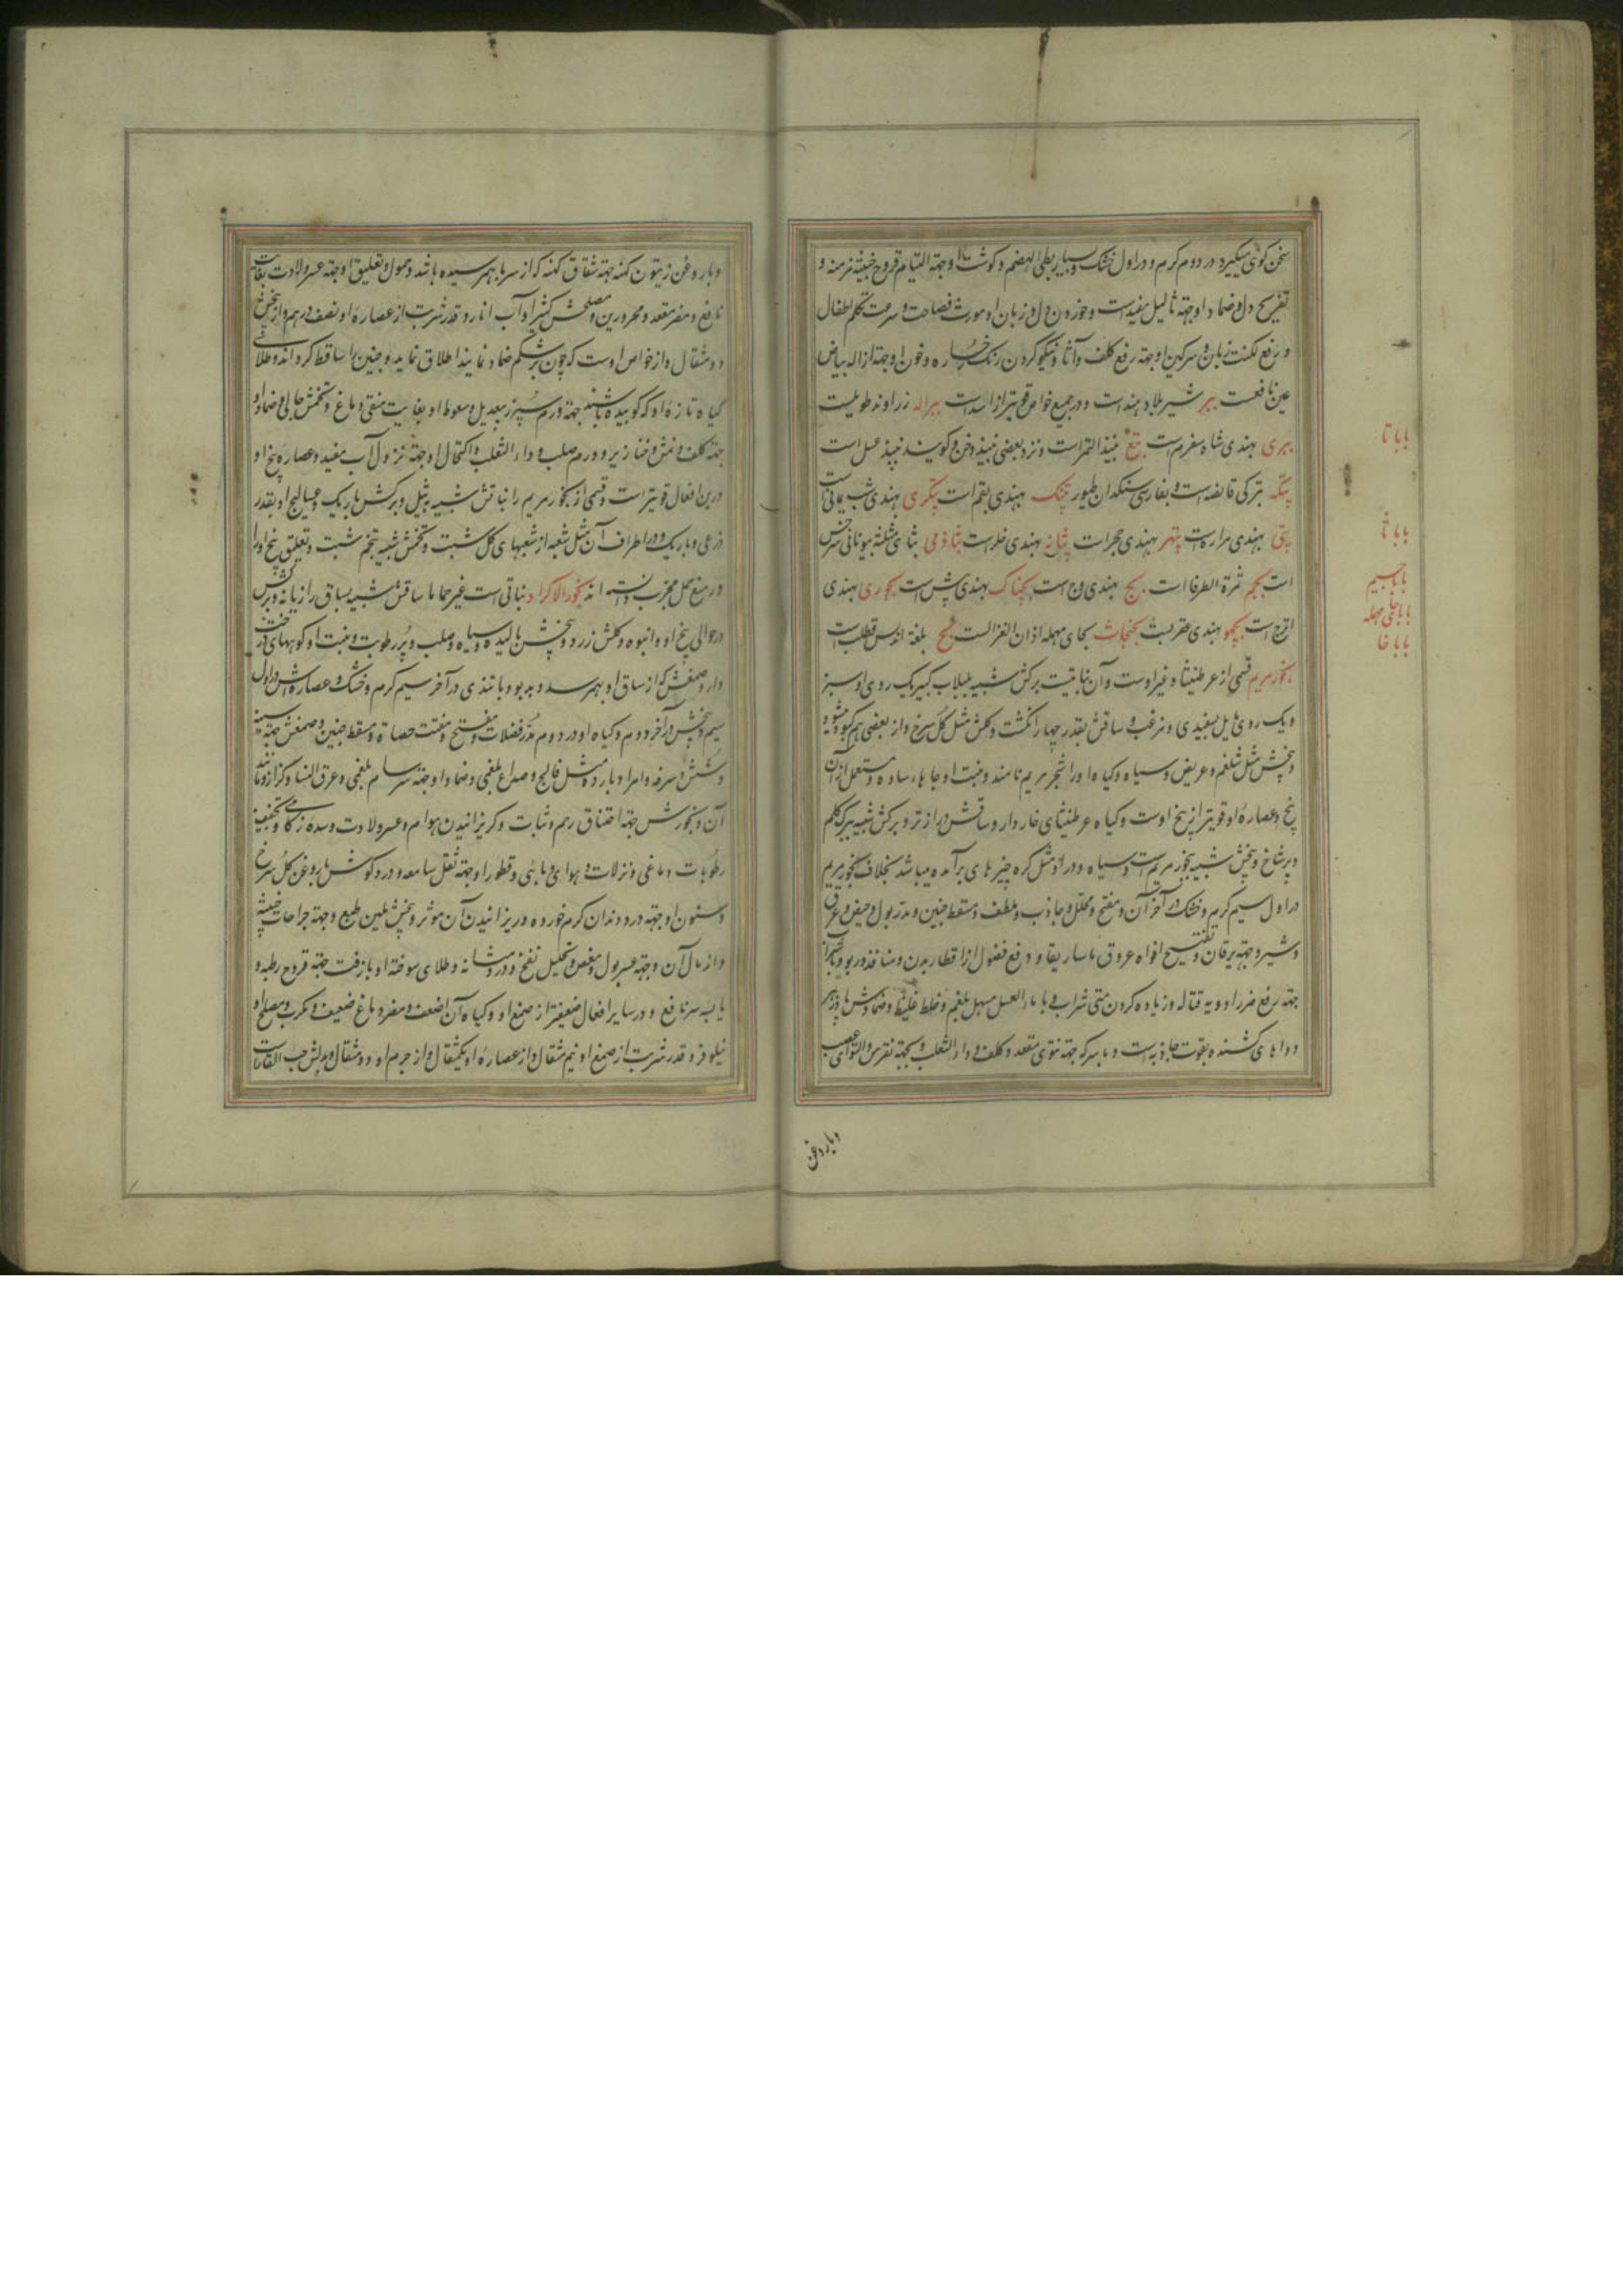 سخن کوئی میکیرد در دوم کرم و در اول خشک و بسیار بطی الهضم و کوشت او جهة التیام قروح خبیثه مزمنه و
تفریح دل و ضماد او جهة ثالیل مفید است و خوردن دل و زبان او مورث فصاحت و سرعت تکلم اطفال
و رفع لکنت زبان و سرکین او جهة رفع کلف و آثار و نیکو کردن رنک رخساره و خون او جهة ازاله بیاض
عین نافعست ببر شیر بلاد هند است و در جمیع خواص قویتر از اسد است ببراله زراوند طویلست
ببری بهندی شاه سفرم است بتع نبیذ التمر است و نزد بعضی نبیذ و خن و کویند نبیذ عسل است
بتکه بترکی قابضه است و بفارسی سنکدان طیور پتنک بهندی بقم است پتکری بهندی شب یمانی است
پتی بهندی مراره است پتهر بهندی حجر است پثانه بهندی خلر است بثاذمی بثای مثلثه بیونانی سرخس
است بجم ثمرة الطرفا است بج بهندی وج است بچناک بهندی بیش است بجوری بهندی
اترج است بچهو بهندی عقربست بحنجاث بحای مهمله اذان الغزالست بح بلغة اندلس قطلب است
بخور مریم قسمی از عرطنیثا و غیر اوست و آن نباتیست برکش شبیه بلبلاب کبیر یک روی او سبز
و یک روی مایل بسفیدی و مزغب و ساقش بقدر چهار انکشت و کلش مثل کل سرخ و از بعضی هم کبود میشود
و بیخش مثل شلغم و عریض و سیاه و کیاه او را شجر مریم نامند و منبت او جاها سایه و مستعمل از آن
بیخ و عصاره او قویتر از بیخ اوست و کیاه عرطنیثای خاردار و ساقش دراز تر و برکش شبیه ببرک کلم
و پر شاخ و بیخش شبیه بخور مریم است و سیاه و در او مثل کره چیزهای برآمده میباشد بخلاف بخور مریم
در اول سیم کرم و خشک و در آخر آن و مفتح و محلل و جاذب و ملطف و مسقط جنین و مدر بول و حیض و عرق
و شیر و جهة یرقان و تفتیح افواه عروق ماساریقا و دفع فضول از اقطار بدن و منافذ و ربو و با شراب
جهة رفع ضرر ادویه قتاله و زیاده کردن مستی شراب و با ماء العسل مسهل بلغم و خلط غلیظ و ضمادش پادزهر
دواهای کشنده بقوت جاذبه است و با سرکه جهة نتوی مقعد و کلف و داء الثعلب و بجهة نقرس و التوای عصب
و با روغن
بابا تا
بابا ثا
بابا جیم
بابا حای مهمله
بابا خا
و با روغن زیتون کهنه جهة شقاق کهنه که از سرما بهم رسیده باشد و حمول و تعلیق او جهة عسر ولادت بغایت
نافع و مضر مقعد و محرورین و مصلحش کثیرا و آب انار و قدر شربت از عصاره او نصف درهم و از بیخش
دو مثقال و از خواص اوست که چون بر شکم ضماد نمایند اطلاق نماید و جنین را ساقط کرداند و طلای
کیاه تازه او که کوبیده باشند جهة ورم سپرز بیعدیل و سعوط او بغایت منقی دماغ و تخمش جالی و ضماد او
جهة کلف و نمش و خنازیر و ورم صلب و داء الثعلب و اکتحال او جهة نزول آب مفید و عصاره بیخ او
درین افعال قویتر است و قسمی از بخور مریم را نباتش شبیه به ثیل و برکش باریک و عسالیج او بقدر
ذرعی و باریک و در اطراف آن مثل شعبه از شعبهای کل شبت و تخمش شبیه بتخم شبت و تعلیق بیخ او را
در منع حمل مجرب دانسته اند بخور الاکراد نباتی است غیر حماما ساقش شبیه بساق رازیانه و برکش
در حوالی بیخ او و انبوه و کلش زرد و بیخش بالیده و سیاه و صلب و پر رطوبت و منبت او کوههای درخت
دار و صمغش که از ساق او بهم رسد و بد بو و با تندی در آخر سیم کرم و خشک و عصاره اش در اول
سیم و بیخش در آخر دوم و کیاه او در دوم مدر فضلات و مفتح و مفتت حصاة و مسقط جنین و صمغش جهة سینه
و شش و سرفه و امراض بارده مثل فالج و صداع بلغمی و ضماد او جهة سرسام بلغمی و عرق النسا و کزاز و مانند
آن و بخورش جهة اختناق رحم و ثبات و کریزانیدن هوام و عسر ولادت و سده زکامی و تجفیف
رطوبات دماغی و نزلات و هوای وبائی و قطور او جهة ثقل سامعه و درد کوش با روغن کل سرخ
و سنون او جهة درد دندان کرم خورده و ریزانیدن آن موثر و بیخش ملین طبع و جهة جراحات خبیثه
و اندمال آن و جهة عسر بول و مغص و تحلیل نفخ و درد مثانه و طلای سوخته او با زفت جهة قروح رطبه و
یابسه سر نافع و در سایر افعال ضعیفتر از صمغ او و کیاه آن اضعف و مضر دماغ ضعیف و مکرب و مصلح او
نیلوفر و قدر شربت از صمغ او نیم مثقال و از عصاره او یکمثقال و از جرم او دو مثقال و بدلش حب القاقیاست